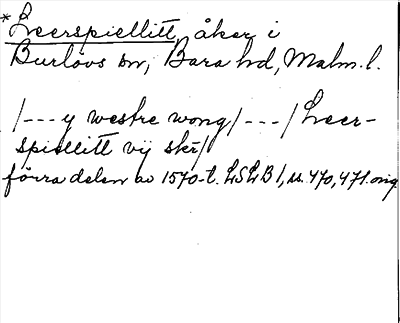 *Leerspiellitt, åker i
Burlövs sn, Bara hd, Malm. l.
/---y westre wong/---/Leer-
spiellitt vij skr/
förra delen av 1570-t. LSLB 1, ss. 470, 471. orig